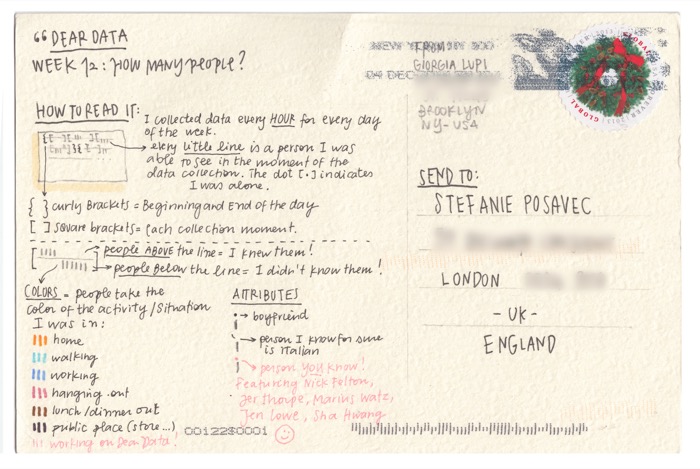 “ DEAR DATA
WEEK 12: HOW MANY PEOPLE?
HOW TO READ IT:
I collected data every HOUR for every day
of the week.
every little line is a person I was
able to see in the moment of the
data collection. The dot [·] indicates
I was alone.
{ } curly Brackets = Beginning and End of the day
[ ] Square brackets = Each collection moment.
people ABOVE the line = I knew them!
people Below the line = I didn't know them!
COLORS = people take the
color of the activity/situation
I was in:
home
walking
working
hanging out
lunch/dinner out
public place (store...)
working on Dear Data!
ATTRIBUTES
boyfriend
person I know for sure
is italian
person YOU know!
Featuring Nick Felton,
Jer Thorpe, Marius Watz,
Jen Lowe, Sha Hwang
0012280001
FROM
GIORGIA LUPI
BROOKLYN
NY-USA
NEW YORK NY 100
04 DEC
GLOBAL
FOREVER
GLOBAL
SEND TO:
STEFANIE POSAVEC
LONDON
- UK -
ENGLAND